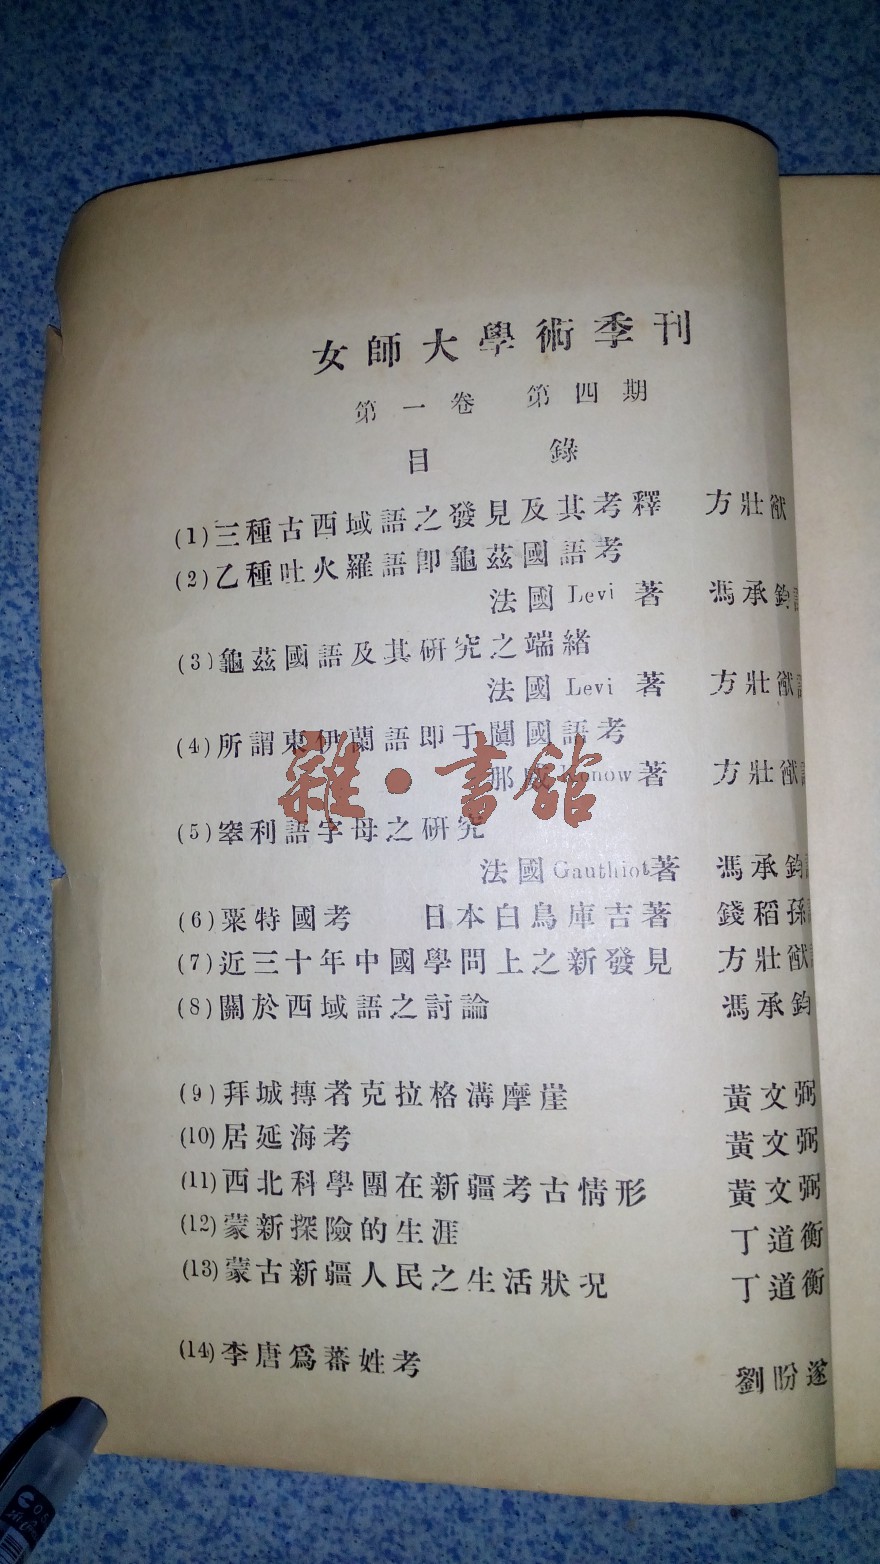 女師大學術季刊
第一卷 第四期
目錄
(1)三種古西域語之發見及其考釋 方壯猷
(2)乙種吐火羅語即龜茲國語考
法國Levi著 馮承鈞譯
(3)龜茲國語及其研究之端緒
法國Levi著 方壯猷譯
(4)所謂東伊蘭語即于闐國語考
那威Konow著 方壯猷譯
(5)窣利語字母之研究
法國Gauthiot著 馮承鈞譯
(6)粟特國考 日本白鳥庫吉著 錢稻孫譯
(7)近三十年中國學問上之新發見 方壯猷譯
(8)關於西域語之討論 馮承鈞
(9)拜城摶者克拉格溝摩崖 黃文弼
(10)居延海考 黃文弼
(11)西北科學團在新疆考古情形 黃文弼
(12)蒙新探險的生涯 丁道衡
(13)蒙古新疆人民之生活狀況 丁道衡
(14)李唐為蕃姓考 劉盼遂
雜·書館